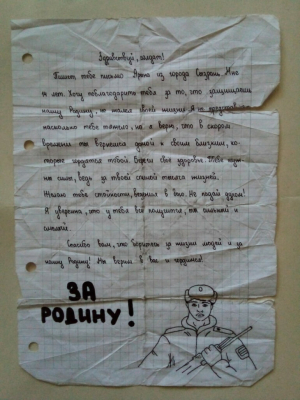 Здравствуй, солдат!
Пишет тебе письмо Арина из города Сызрань. Мне
лет. Хочу поблагодарить тебя за то, что защищаешь
нашу Родину, не жалея своей жизни. Я не представляю
насколько тебе тяжело, но я верю, что в скором
времени ты вернешься домой к своим близким, ко-
торые гордятся тобой. Береги свое здоровье. Тебе нуж-
ны силы, ведь за твоей спиной тысяча жизней.
Желаю тебе стойкости, верим в вас. Не падай духом!
Я уверена, что у тебя всё получится, ты сильный и
смелый.
Спасибо вам, что боритесь за жизни людей и за
нашу Родину! Мы верим в вас и гордимся!
ЗА
РОДИНУ!